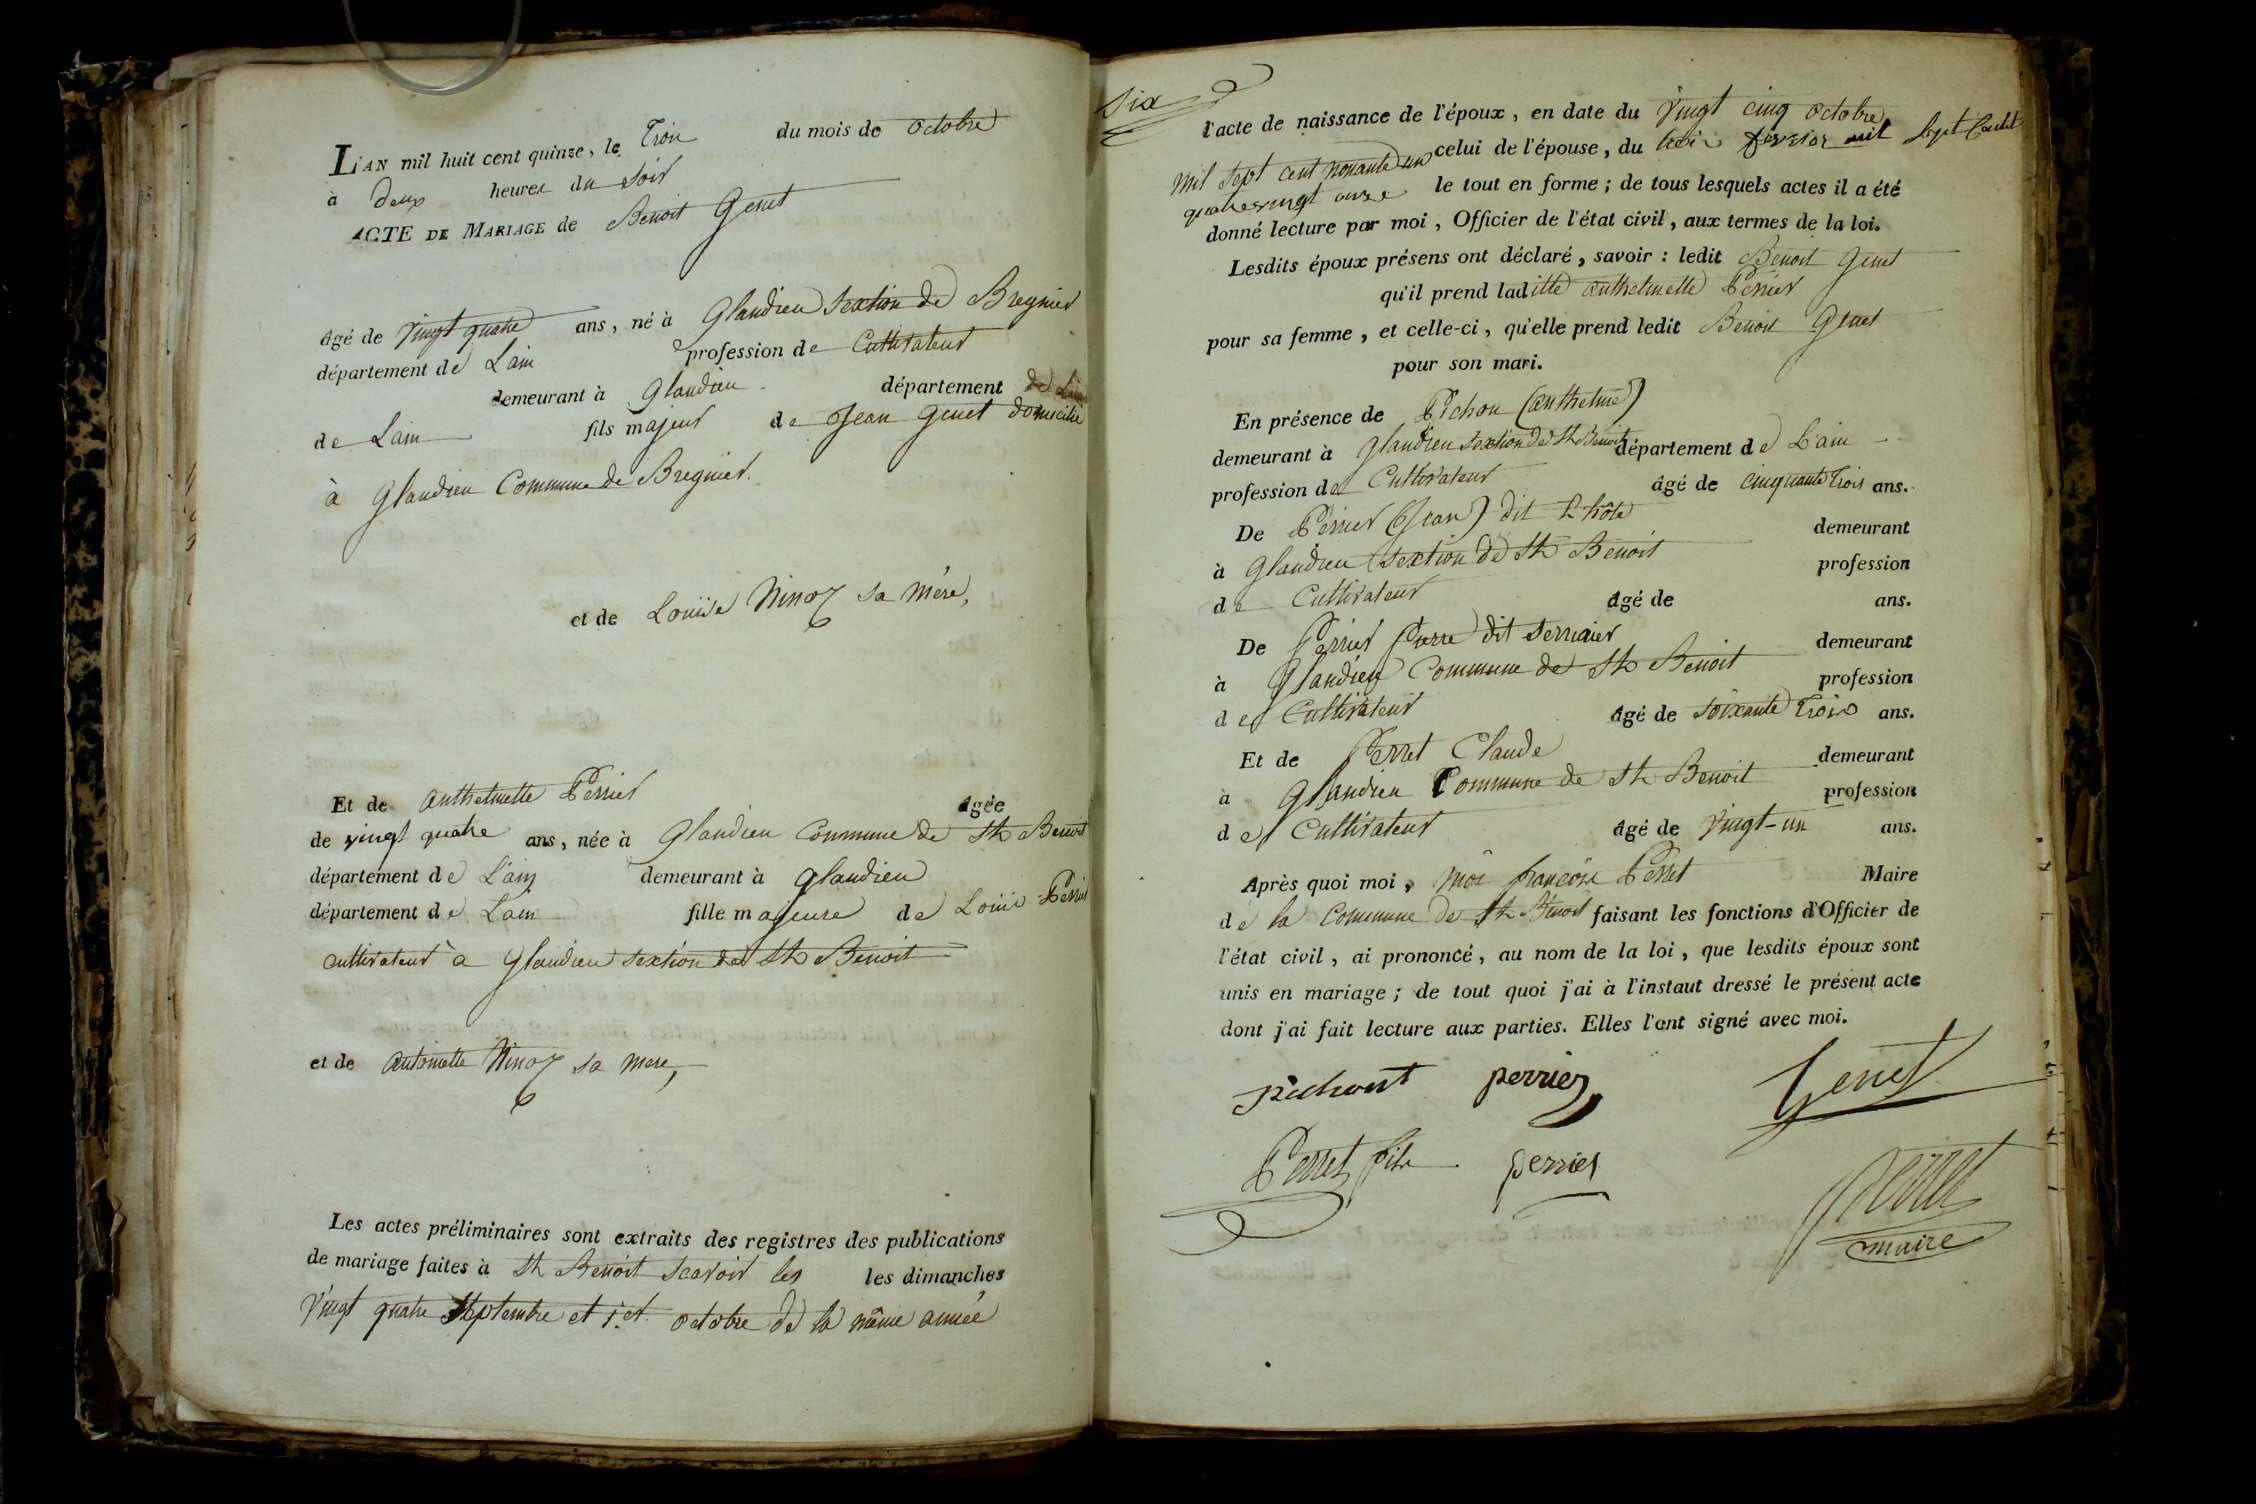 L'AN mil huit cent quinze, le Troix du mois de octobre
à Deux heures du soir
ACTE DE MARIAGE de Benoit Genet
âgé de vingt quatre ans, né à Glandieu sextion de Bregnier
département de Lain profession de Cultivateur
demeurant à Glandieu département de Lain
de Lain fils majeur de Jean Genet domicilié
à Glandieu Commune de Bregnier.
et de Louise Ninoz sa mère,
Et de anthelmette Perrier âgée
de vingt quatre ans, née à Glandieu Commune de St Benoit
département de Lain demeurant à glandieu
département de Lain fille majeure de Louis Perrier
cultivateur à Glandieu sextion de St Benoit
et de antoinette Ninoz sa mere,
Les actes préliminaires sont extraits des registres des publications
de mariage faites à St Benoit Scavoir les les dimanches
vingt quatre Septembre et 1er octobre de la même année
Six
l'acte de naissance de l'époux, en date du vingt cinq octobre
mil sept cent nonante un celui de l'épouse, du trois fevrier mil sept cent
quatrevingt onze le tout en forme; de tous lesquels actes il a été
donné lecture par moi, Officier de l'état civil, aux termes de la loi.
Lesdits époux présens ont déclaré, savoir: ledit Benoit Genet
qu'il prend laditte anthelmette Perrier
pour sa femme, et celle-ci, qu'elle prend ledit Benoit Genet
pour son mari.
En présence de Pichon (anthelme)
demeurant à Glandieu sextion de St Benoit département de L'ain
profession de Cultivateur âgé de cinquante trois ans.
De Perrier (Jean) dit L'hôte demeurant
à Glandieu sextion de St Benoit profession
de Cultivateur âgé de ans.
De Perrier Pierre dit demeurant
à Glandieu Commune de St Benoit profession
de Cultivateur âgé de soixante Trois ans.
Et de Perret Claude demeurant
à Glandieu Commune de St Benoit profession
de Cultivateur âgé de vingt-un ans.
Après quoi moi, moi françois Perret Maire
de la Commune de St Benoit faisant les fonctions d'Officier de
l'état civil, ai prononcé, au nom de la loi, que lesdits époux sont
unis en mariage; de tout quoi j'ai à l'instaut dressé le présent acte
dont j'ai fait lecture aux parties. Elles l'ont signé avec moi.
pichont perrier Genet
Perret fils perrier Perret
maire